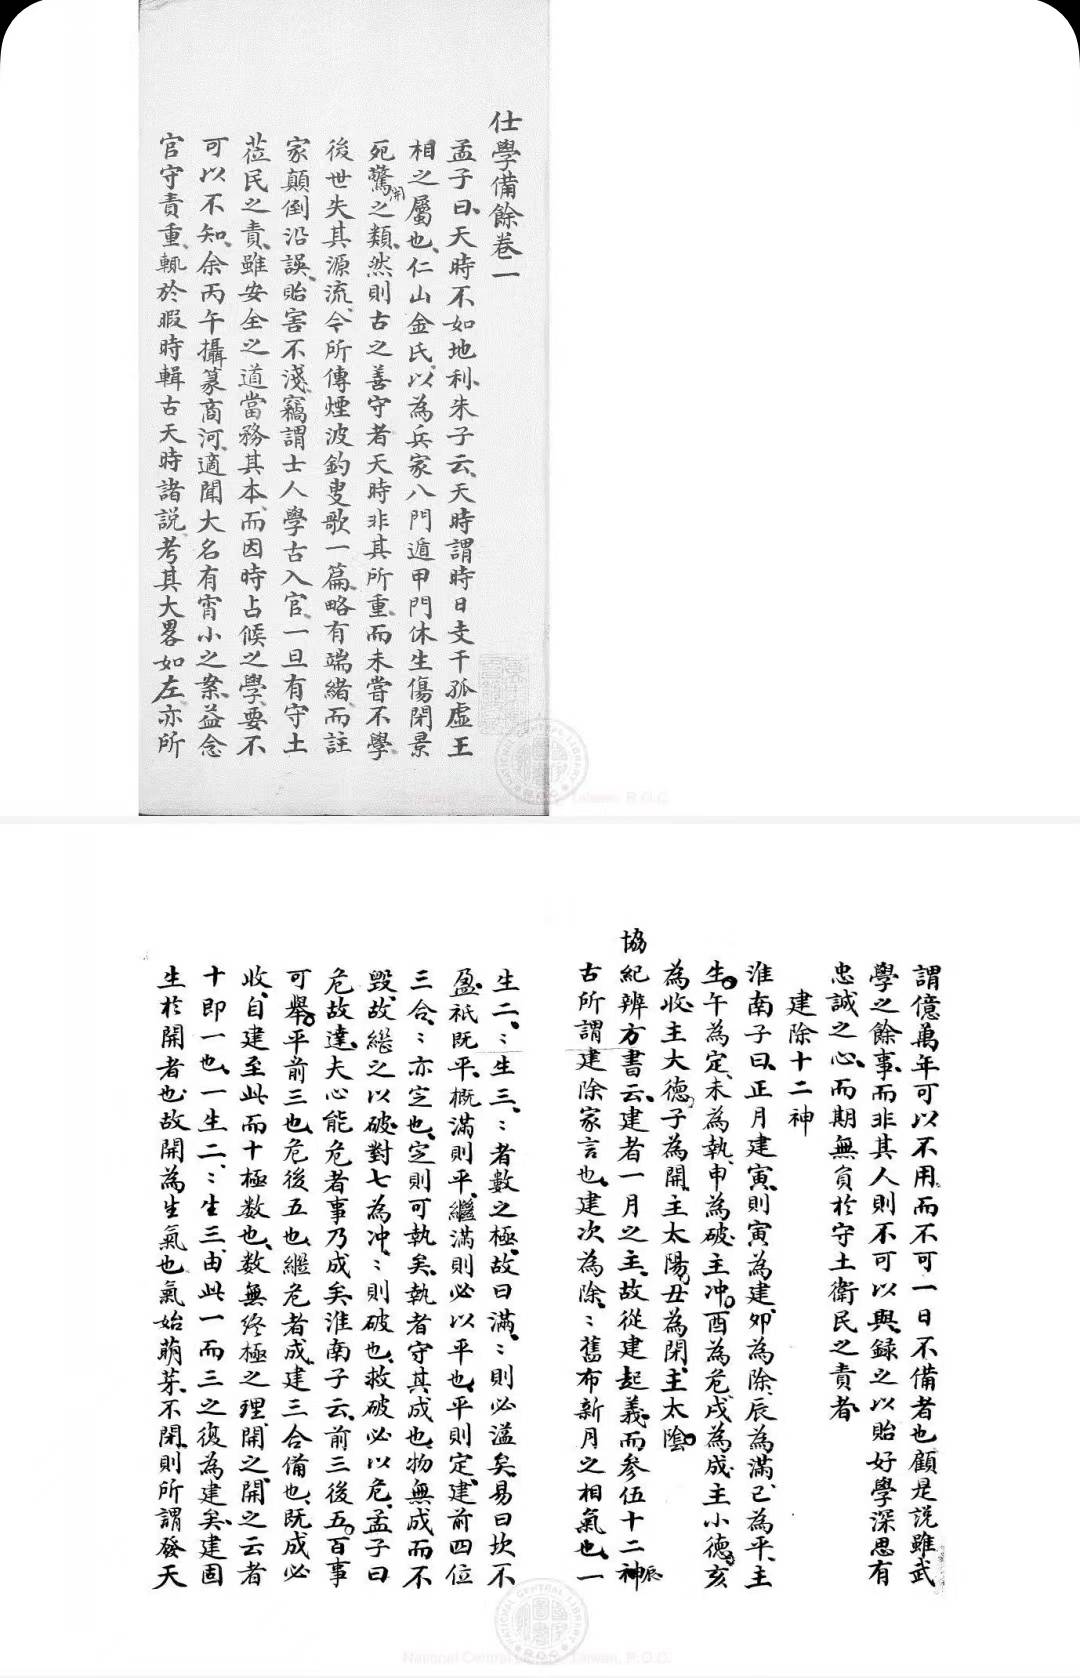 仕學備餘卷一
孟子曰、天時不如地利、朱子云、天時謂時日支干孤虛王
相之屬也、仁山金氏、以為兵家八門遁甲門休生傷閉景
死驚開之類、然則古之善守者天時非其所重、而未嘗不學、
後世失其源流、今所傳煙波釣叟歌一篇、略有端緒、而註
家顛倒沿誤、貽害不淺、竊謂士人學古入官、一旦有守土
蒞民之責、雖安全之道當務其本、而因時占候之學、要不
可以不知、余丙午攝篆商河、適聞大名有宵小之案、益念
官守責重、輒於暇時輯古天時諸說、考其大畧如左、亦所
謂億萬年可以不用、而不可一日不備者也顧是說雖武
學之餘事、而非其人則不可以與、録之以貽好學深思有
忠誠之心、而期無負於守土衛民之責者、
建除十二神
淮南子曰、正月建寅、則寅為建、卯為除、辰為滿、巳為平、主
生、午為定、未為執、申為破、主冲、酉為危、戌為成、主小德、亥
為收、主大德、子為開、主太陽、丑為閉、主太陰
協紀辨方書云、建者一月之主、故從建起義、而參伍十二神辰
古所謂建除家言也、建次為除、：舊布新月之相氣也、一
生二、：生三、：者數之極、故曰滿、：則必溢矣、易曰坎不
盈、祇既平、概滿則平、繼滿則必以平也、平則定、建前四位
三合、：亦定也、定則可執矣、執者守其成也、物無成而不
毀、故繼之以破、對七為冲、：則破也、救破必以危、孟子曰
危故達、夫心能危者事乃成矣、淮南子云、前三後五、百事
可舉、平前三也、危後五也、繼危者成、建三合備也、既成必
收、自建至此而十極数也、数無終極之理、開之、開之云者
十即一也、一生二、：生三、由此一而三之復為建矣、建固
生於開者也、故開為生氣也、氣始萌芽、不閉、則所謂發天